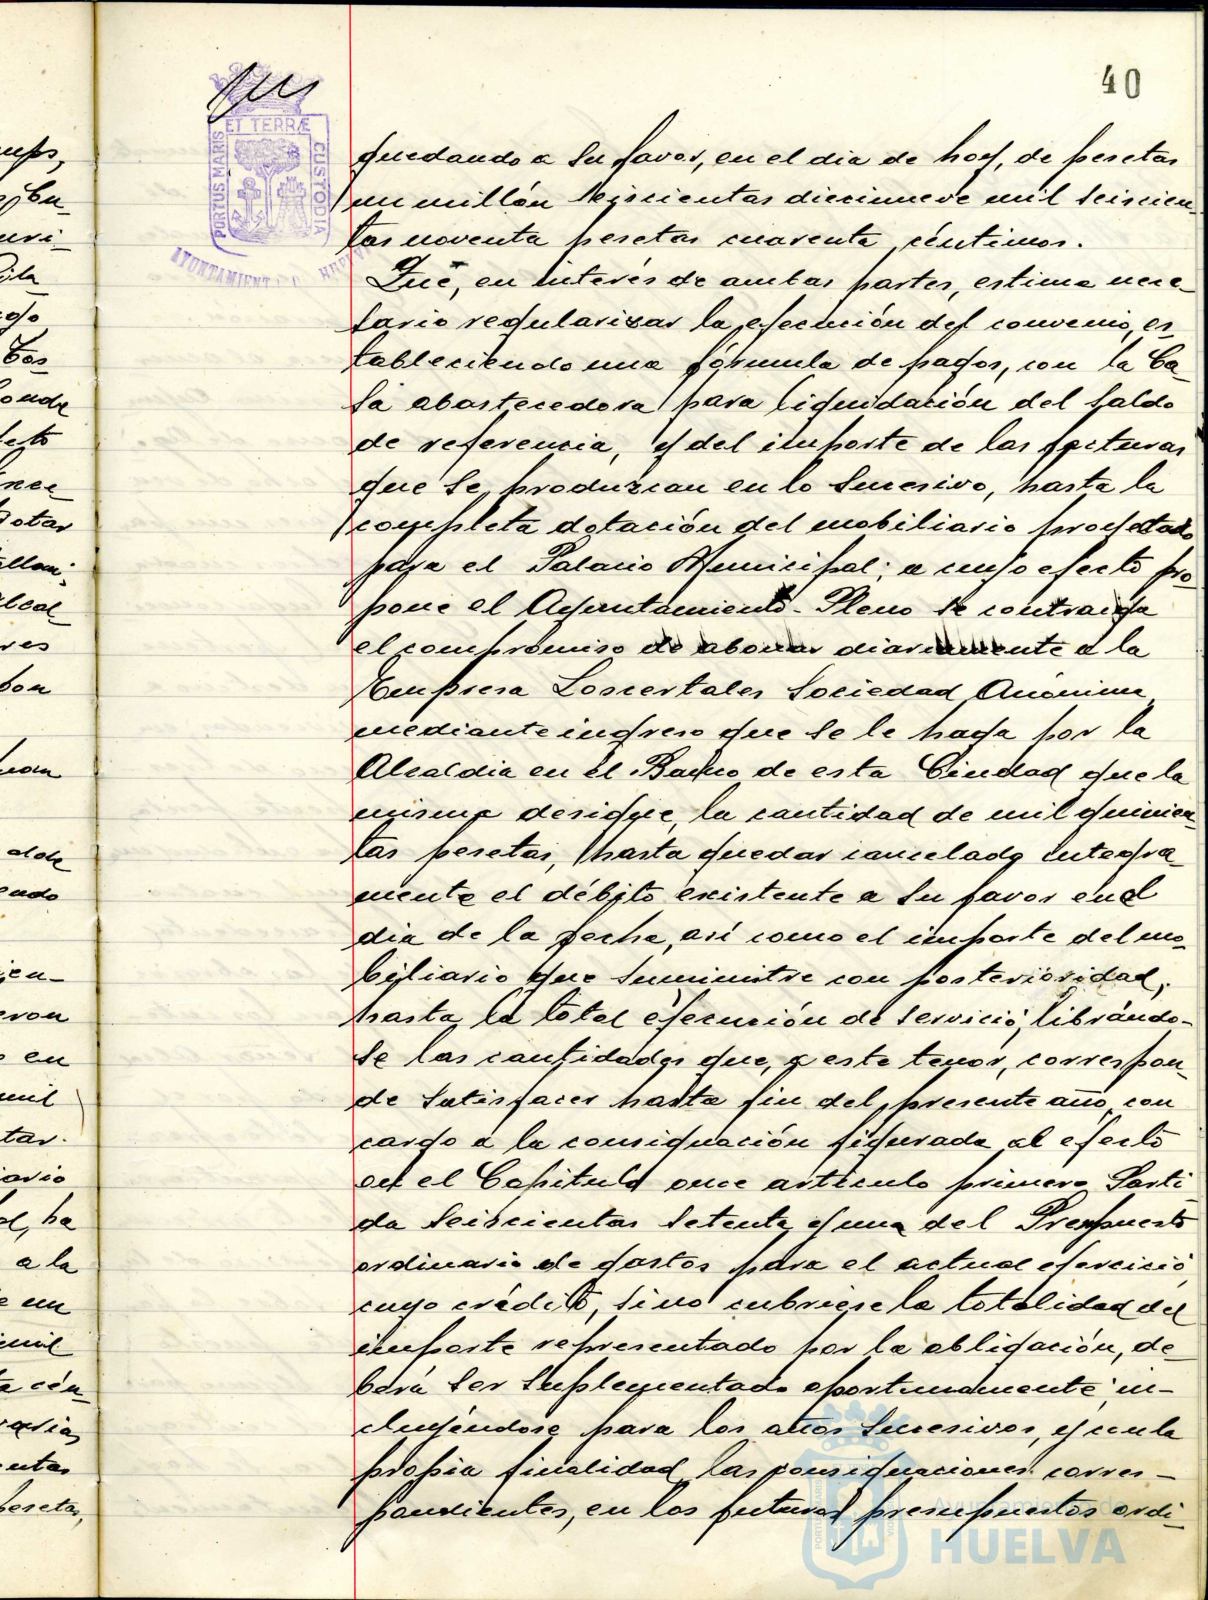 40
PORTUS MARIS ET TERRÆ CUSTODIA
AYUNTAMIENTO HUELVA
quedando a su favor, en el dia de hoy, de pesetas
un millón seiscientas diecinueve mil seiscien-
tas noventa pesetas cuarenta céntimos.
Que, en interés de ambas partes, estima nece-
sario regularizar la ejecución del convenio, es-
tableciendo una fórmula de pagos, con la Ca-
sa abastecedora para liquidación del saldo
de referencia, y del importe de las facturas
que se produzcan en lo sucesivo, hasta la
completa dotación del mobiliario proyectado
para el Palacio Municipal; a cuyo efecto pro-
pone el Ayuntamiento-Pleno se contraiga
el compromiso de abonar diariamente a la
Empresa Loscertales Sociedad Anónima,
mediante ingreso que se le haga por la
Alcaldia en el Banco de esta Ciudad que la
misma designe, la cantidad de mil quinien-
tas pesetas, hasta quedar cancelado integra-
mente el débito existente a su favor en el
dia de la fecha, así como el importe del mo-
biliario que suministre con posterioridad,
hasta la total ejecución de servicio, librándo-
se las cantidades que, a este tenor, correspon-
de satisfacer hasta fin del presente año, con
cargo a la consignación figurada al efecto
en el Capitulo once articulo primero Parti-
da seiscientas setenta y una del Presupuesto
ordinario de gastos para el actual ejercicio,
cuyo crédito, si no cubriese la totalidad del
importe representado por la obligación, de-
berá ser suplementado oportunamente; in-
cluyéndose para los años sucesivos, y con la
propia finalidad, las consignaciones corres-
pondientes, en los futuros presupuestos ordi-
Ayuntamiento de
HUELVA